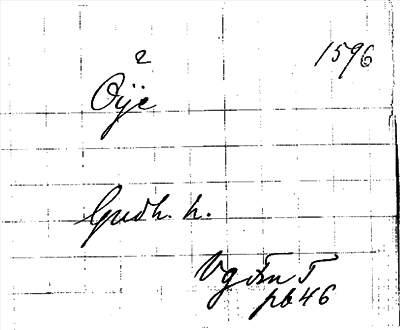 2
1596
Öije
Gudh. h.
Vg Fm T
pb 46